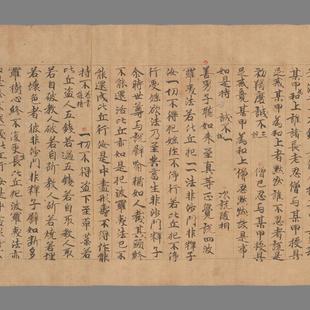 某甲和上誰諸長老忍僧與某甲授具
足戒某甲為和上者默然誰不忍者說是
初羯磨 僧已忍與某甲授具
足戒竟某甲為和上僧忍默然故是事
如是持 次說隨相
善男子聽如來至真等正覺說四波
羅夷法若比丘犯一一法非沙門非釋子
汝一切不得犯婬作不淨行若比丘犯不淨
行受婬欲法乃至共畜生非沙門非釋子
尒時世尊與說譬喻猶如有人截其頭終
不能還活比丘亦如是犯波羅夷法已不
能還成比丘汝是中盡形壽不得作能
持不 答言能持 一切不得盜下至草葉若
比丘盜人五錢若過五錢若自取教人取
若自破教人破若自斫教人斫若燒若埋
若壞色者彼非沙門非釋子譬如斷多
羅樹心終不復更生長比丘犯波羅夷法亦